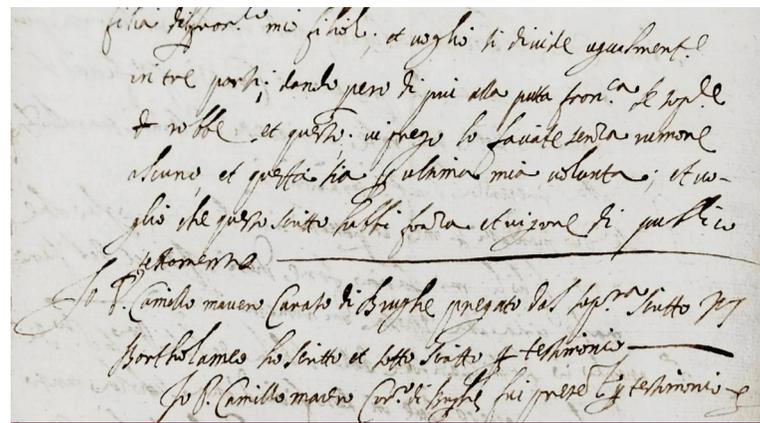 filia del mio filiol, et voglio si divide ugualmente
in tre parti, dando pero di piu alla putta fran.ca
robbe et questo vi prego lo faviate senza rumore
alcuno, et questa sia ultima mia volonta; et vo-
glio che questo scritto habbi forza et vigore di publico
testamento
Io P. Camillo mavero Curato di Brughe pregato dal sop.ra scritto
Bortholameo ho scritto et sotto scritto testimonio
Io P. Camillo mavero Cur.to di testimonio